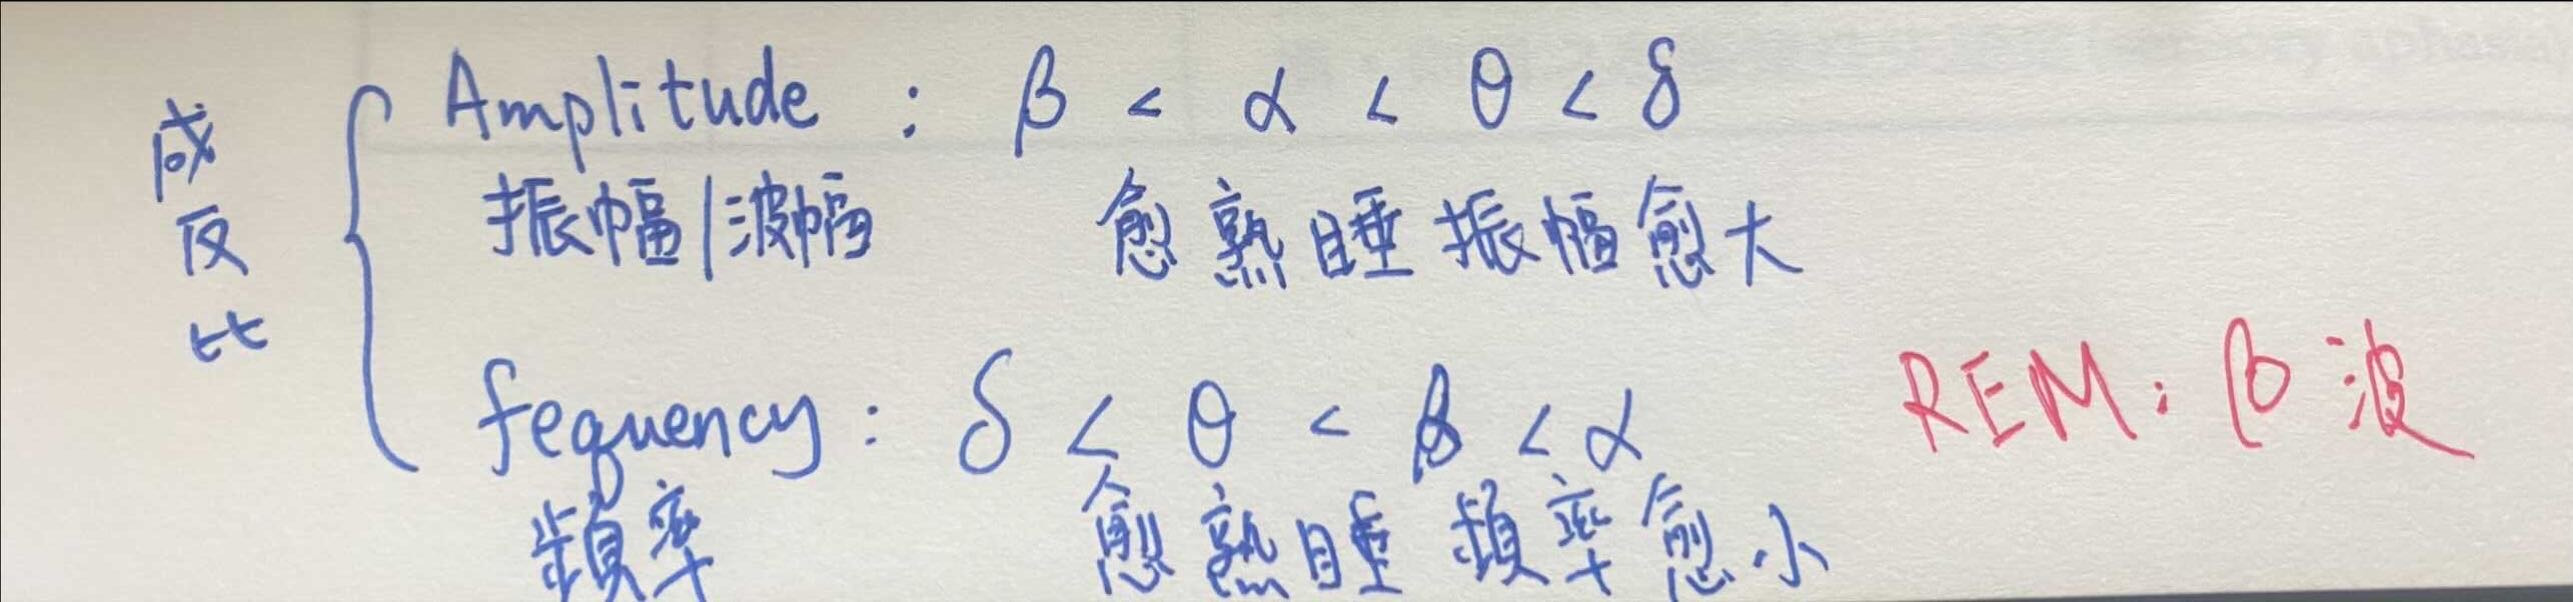 成反比
Amplitude : β < α < θ < δ
振幅/波幅
愈熟睡振幅愈大
fequency : δ < θ < β < α
REM: β波
頻率
愈熟睡頻率愈小